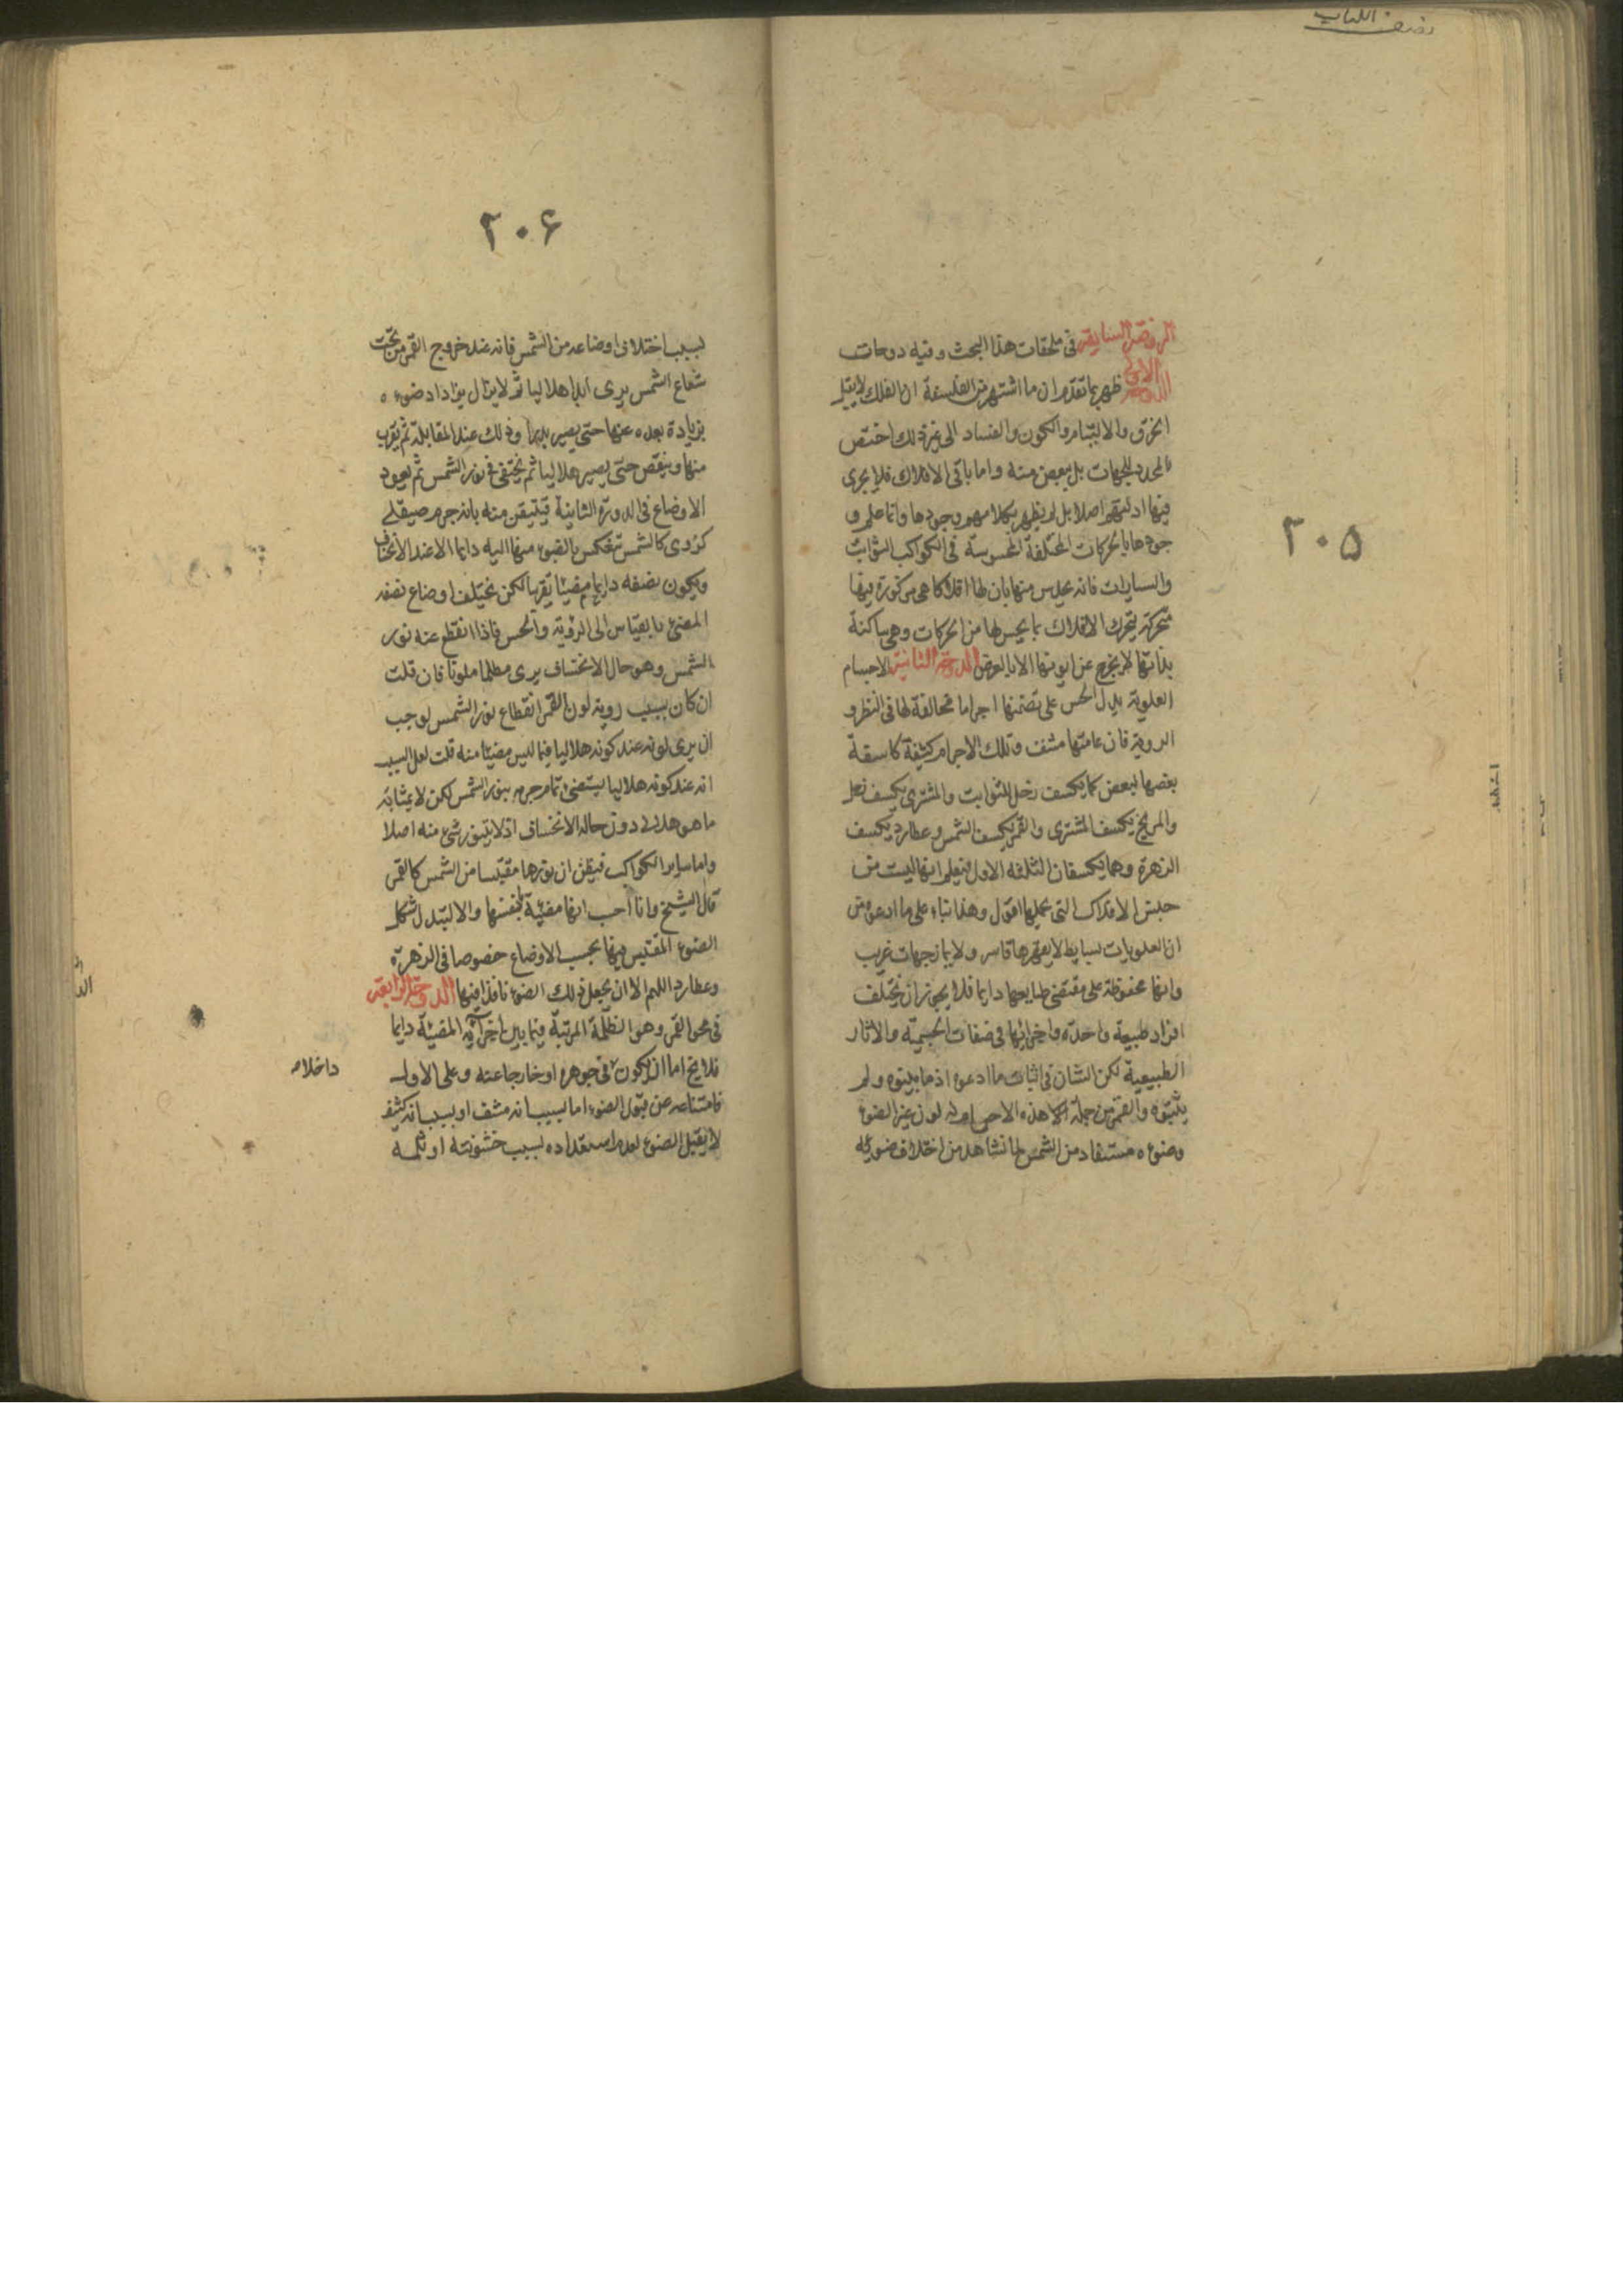 نصف الكتاب
٢٠٥
الروضة السابقة فى ملحقات هذا البحث وفيه دوحات
الدوحة الاولى ظهر بما تقدم ان ما اشتهر من الفلسفة ان الفلك لا يقبل
الخرق والالتيام والكون والفساد الى غير ذلك اختص
بالمحدد للجهات بل ببعض منه واما باقى الافلاك فلا يجرى
فيها ادلتهم اصلا بل لم يظهر بكلامهم وجودها وانما علم و
جودها بالحركات المختلفة المحسوسة فى الكواكب الثوابت
والسيارات فانه يحدس منها بان لها افلاكا هى مركوزة فيها
متحركة بتحرك الافلاك بما يحس لها من الحركات وهى ساكنة
بذاتها لم يخرج عن ايونها الا بالعرض الدوحة الثانية الاجسام
العلوية يدل الحس على تضمنها اجراما مخالفة لها فى النظر و
الروية فان عامتها مشف وتلك الاجرام كثيفة كاسفة
بعضها لبعض كما يكسف زحل للثوابت والمشترى يكسف زحل
والمريخ يكسف المشترى والقمر يكسف الشمس وعطارد يكسف
الزهرة وهما يكسفان الثلثة الاول فيعلم انها ليست من
جنس الافلاك التى يحملها اقول وهذا بناء على ما ادعوه من
ان العلويات بسايط لا يقهرها قاسر ولا يمازجها غريب
وانها محفوظة على مقتضى طبايعها دايما فلا يجوز ان يختلف
افراد طبيعة واحدة واجزائها فى صفات الجسمية والاثار
الطبيعية لكن الشان فى اثبات ما ادعوه اذ ما بينوه ولم
يثبتوه والقمر من جملة هذه الاجسام له لون غير الضوء
وضوءه مستفاد من الشمس لما نشاهد من اختلاف ضوئه
٢٠۶
بسبب اختلاف اوضاعه من الشمس فانه عند خروج القمر من تحت
شعاع الشمس يرى ابدا هلاليا ثم لا يزال يزداد ضوءه
بزيادة بعده عنها حتى يصير بدرا وذلك عند المقابلة ثم يقرب
منها وينقص حتى يصير هلاليا ثم يختفى فى نور الشمس ثم يعود
الاوضاع فى الدورة الثانية فيتيقن منه بانه جرم صيقلى
كروى كالشمس منعكس بالضوء منها اليه دايما الا عند الانخساف
ويكون نصفه دايما مضيئا تقريبا لكن يختلف اوضاع نصفه
المضئ بالقياس الى الروية والحس فاذا انقطع عنه نور
الشمس وهو حال الانخساف يرى مظلما ملونا فان قلت
ان كان بسبب روية لون القمر انقطاع نور الشمس لوجب
ان يرى لونه عند كونه هلاليا فيما ليس مضيئا منه قلت لعل السبب
انه عند كونه هلاليا يستضئ تمام جرمه بنور الشمس لكن لا بمثابة
ما هو هلالى دون حالة الانخساف اذ لا يتنور شئ منه اصلا
واما ساير الكواكب فيظن ان نورها مقتبسا من الشمس كالقمر
قال الشيخ وانا احسب انها مضيئة بنفسها والا لتبدل شكل
الضوء المقتبس فيها بحسب الاوضاع خصوصا فى الزهرة
وعطارد اللهم الا ان يجعل ذلك الضوء نافذا فيها الدوحة الرابعة
فى محو القمر وهو الظلمة المرتبة فيما بين اجزائه المضيئة دايما
فلا يخ اما ان يكون فى جوهره او خارجا عنه وعلى الاول
داخلا
فامتناعه عن قبول الضوء اما بسبب انه مشف او بسبب انه كثيف
لا يقبل الضوء لعدم استعداده بسبب خشونته او ثلمه